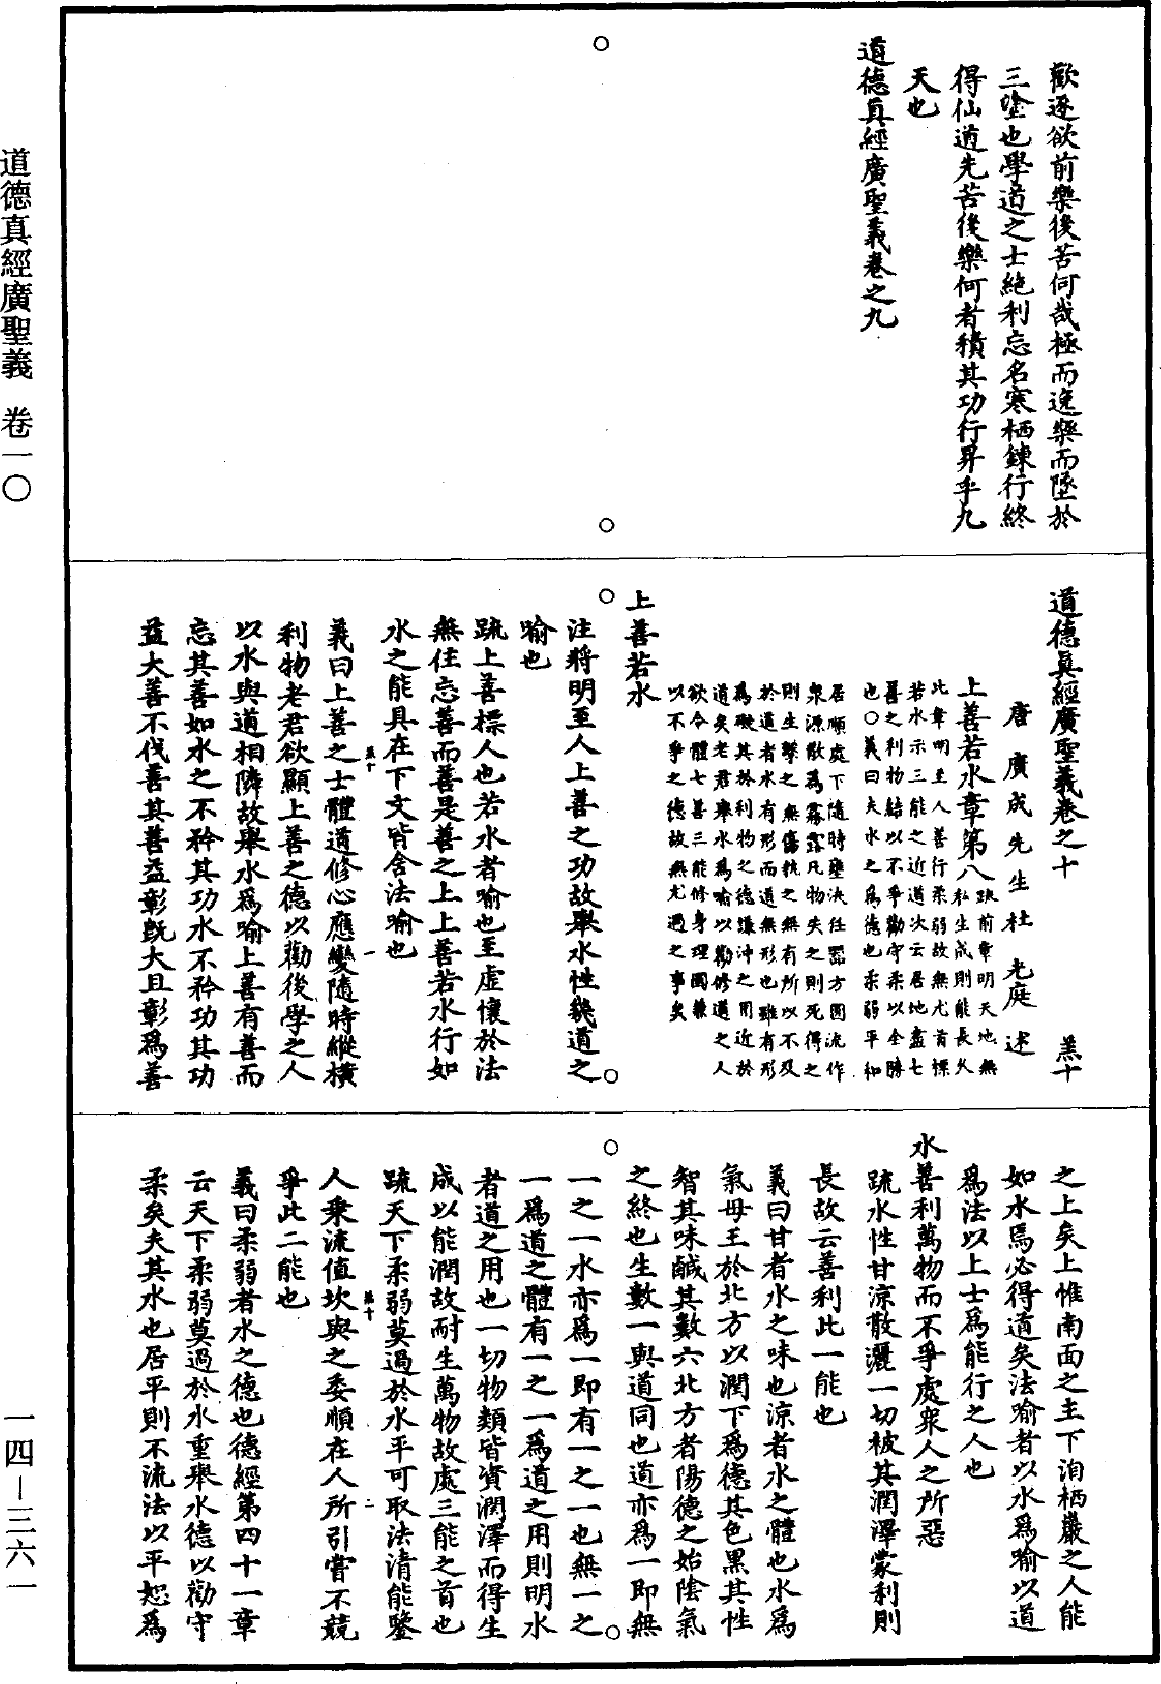 歡逐欲前樂後苦何哉極而逸樂而墜於
三塗也學道之士絶利忘名寒栖鍊行終
得仙道先苦後樂何者積其功行昇乎九
天也
道德真經廣聖義卷之九
道德真經廣聖義卷之十
羔十
唐廣成先生杜光庭述
上善若水章第八
疏前章明天地無
私生成則能長久
此章明至人善行柔弱故無尤首標
若水示三能之近道次云居地盡七
善之利物結以不爭勸守柔以全勝
也○義曰夫水之爲德也柔弱平和
居順處下隨時壅決任器方圓流作
衆源散爲霧露凡物失之則死得之
則生擊之無傷執之無有所以不及
於道者水有形而道無形也雖有形
爲礙其於利物之德謙沖之用近於
道矣老君舉水爲喻以勸修道之人
欲令體七善三能修身理國兼
以不爭之德故無尤過之事矣
上善若水
注將明至人上善之功故舉水性幾道之
喻也
疏上善標人也若水者喻也至虛懷於法
無住忘善而善是善之上上善若水行如
水之能具在下文皆含法喻也
羔十 一
義曰上善之士體道修心應變隨時縱橫
利物老君欲顯上善之德以勸後學之人
以水與道相隣故舉水爲喻上善有善而
忘其善如水之不矜其功水不矜功其功
益大善不伐善其善益彰既大且彰爲善
之上矣上惟南面之主下洎栖巖之人能
如水焉必得道矣法喻者以水爲喻以道
爲法以上士爲能行之人也
水善利萬物而不爭處衆人之所惡
疏水性甘涼散灑一切被其潤澤蒙利則
長故云善利此一能也
義曰甘者水之味也涼者水之體也水爲
氣母王於北方以潤下爲德其色黑其性
智其味鹹其數六北方者陽德之始陰氣
之終也生數一與道同也道亦爲一即無
一之一水亦爲一即有一之一也無一之
一爲道之體有一之一爲道之用則明水
者道之用也一切物類皆資潤澤而得生
成以能潤故耐生萬物故處三能之首也
疏天下柔弱莫過於水平可取法清能鑒
羔十 二
人乘流值坎與之委順在人所引嘗不競
爭此二能也
義曰柔弱者水之德也德經第四十一章
云天下柔弱莫過於水重舉水德以勸守
柔矣夫其水也居平則不流法以平恕爲
道德真經廣聖義 卷一〇
一四—三六一